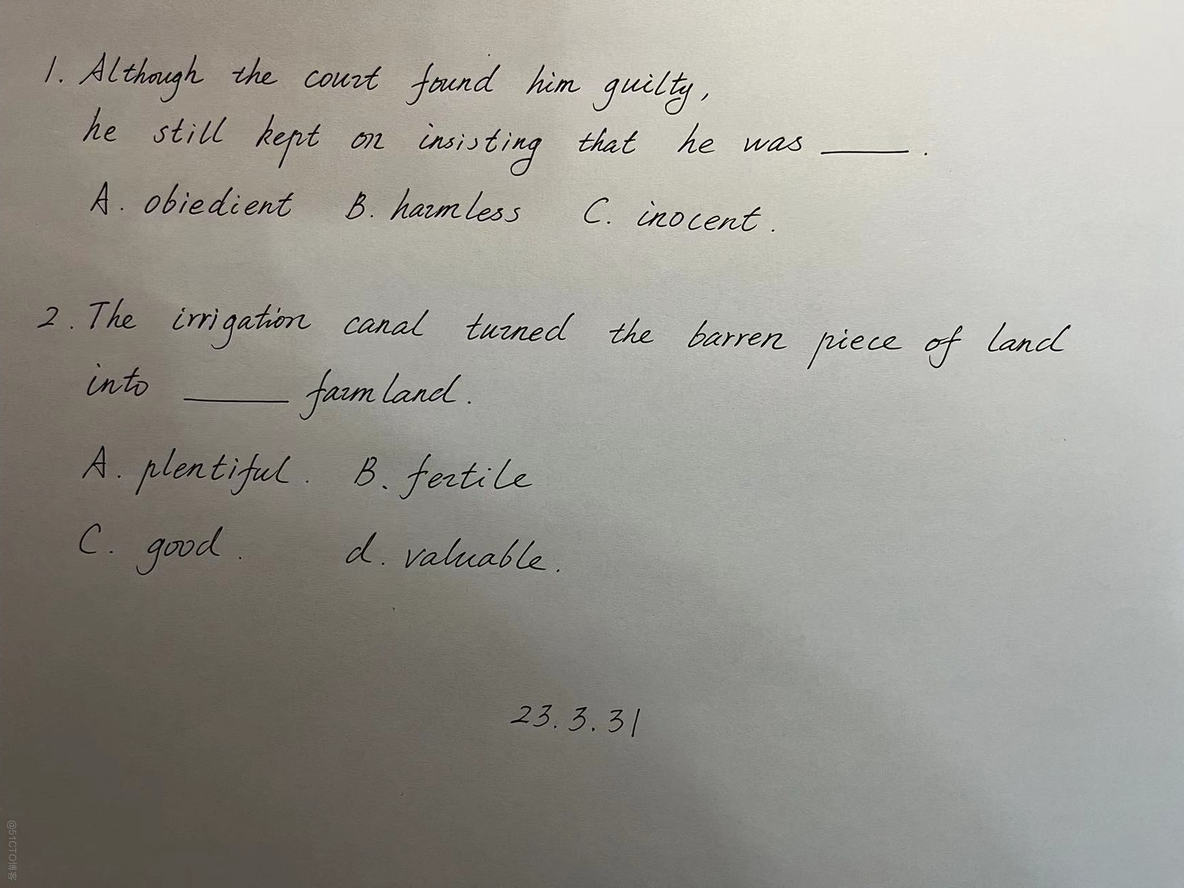 1. Although the court found him guilty,
he still kept on insisting that he was ____.
A. obiedient B. harmless C. inocent.
2. The irrigation canal turned the barren piece of land
into ____ farmland.
A. plentiful. B. fertile
C. good. d. valuable.
23.3.31
@51CTO博客